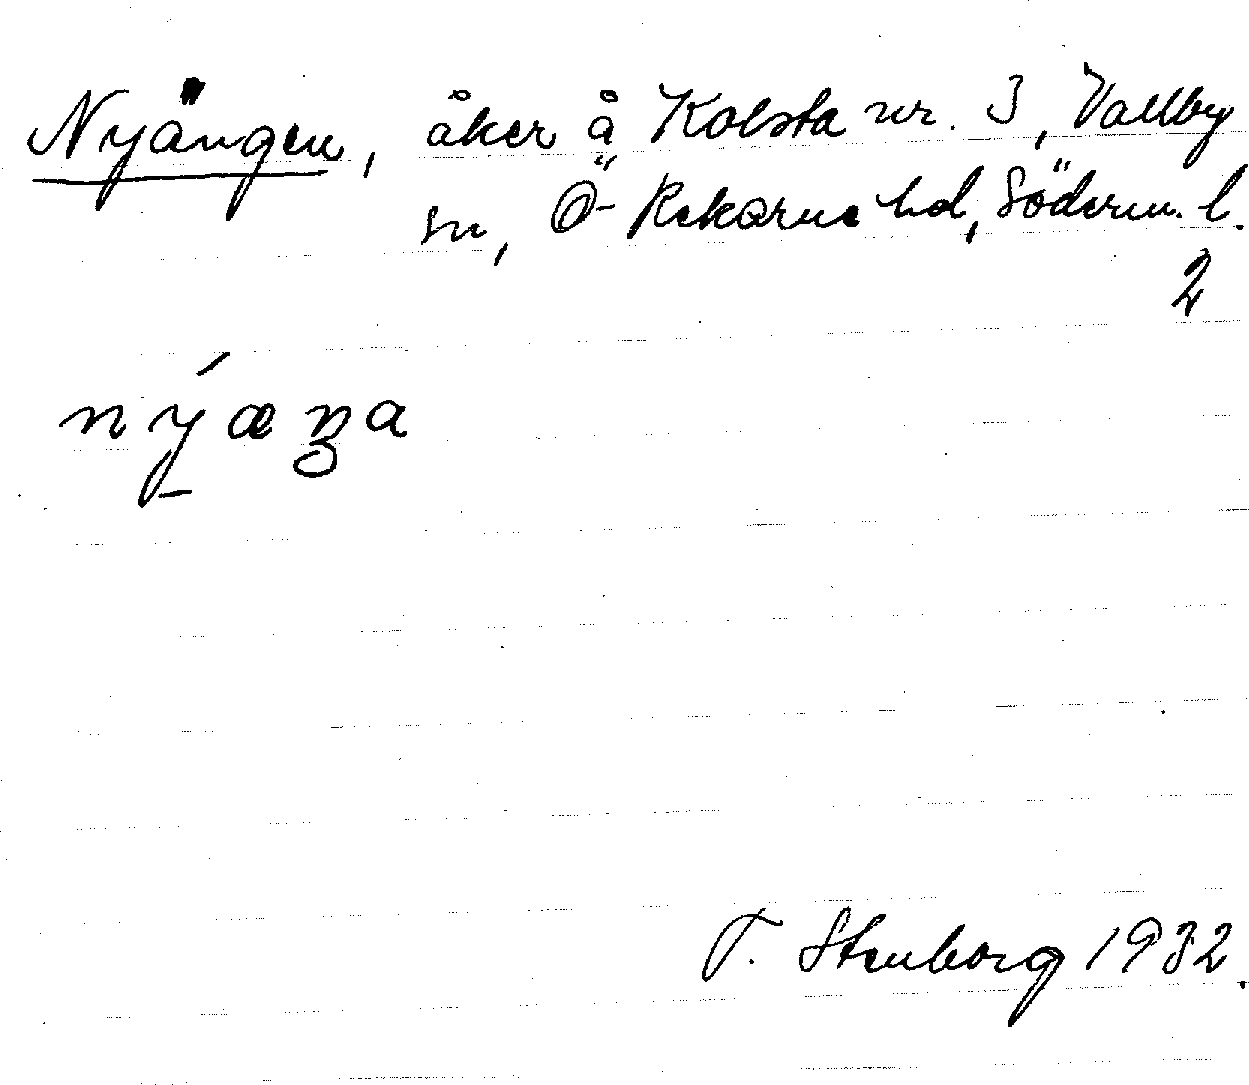 Nyängen, åker å Kolsta nr. 3, Vallby
sn, Ö- Rekarne hd, Söderm. l.
2
T. Stenborg 1932.